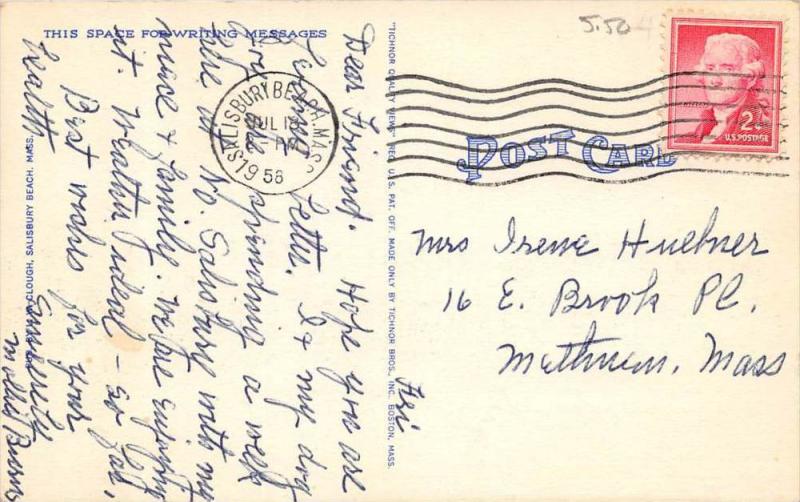 THIS SPACE FOR WRITING MESSAGES
Dear Friend. Hope you are
feeling better. I & my dog
are spending a week
here at No. Salisbury with my
niece & family. We are enjoying
it. Weather ideal - so far.
Best wishes for your
health
Sincerely
Burns
CLOUGH, SALISBURY BEACH, MASS.
"TICHNOR QUALITY VIEWS" REG. U. S. PAT. OFF. MADE ONLY BY TICHNOR BROS., INC. BOSTON, MASS.
SALISBURY BEACH, MASS.
JUL
1956
5.50
2¢
U.S. POSTAGE
POST CARD
Mrs Irene Huebner
16 E. Brook Pl.
Methuen, Mass
Fri